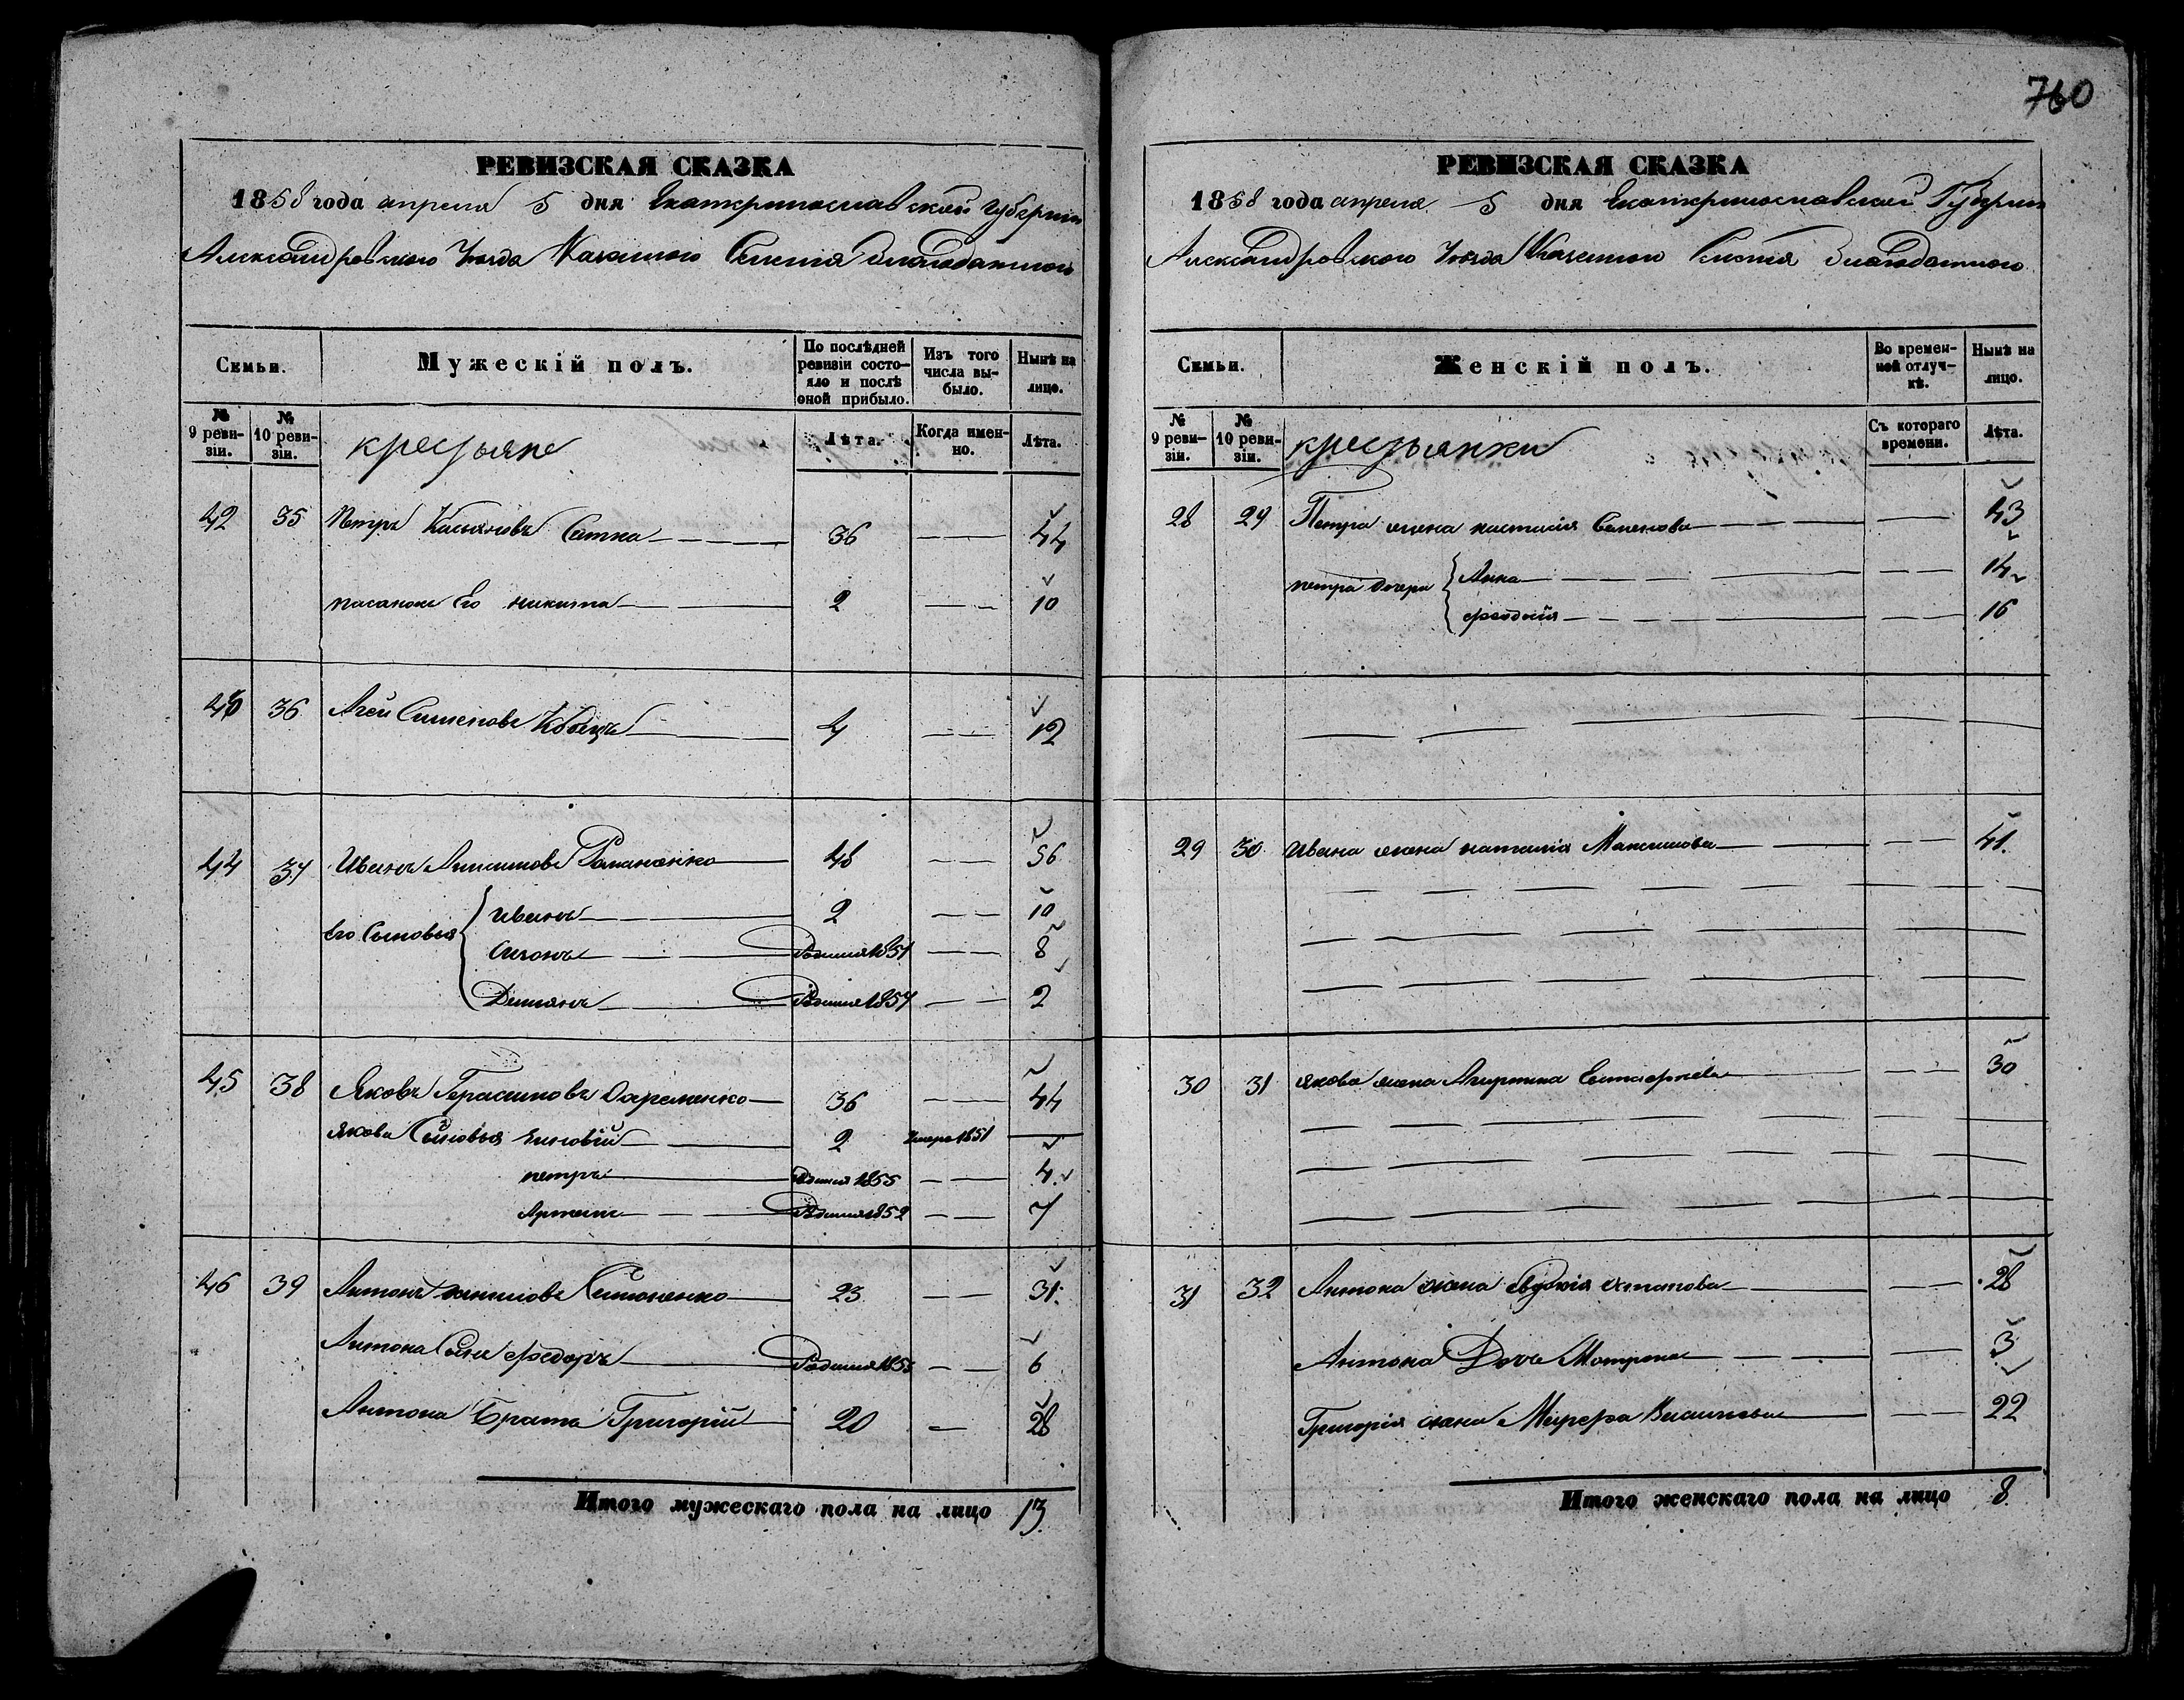 760
РЕВИЗСКАЯ СКАЗКА
1858 года апреля 5 дня Екатеринославской Губернии
Александровского Уезда Казенного Селения Благодатного
Семьи. Мужескій полъ. По послѣдней ревизіи состояло и послѣ оной прибыло. Изъ того числа выбыло. Нынѣ на лицо.
№ 9 ревизіи. № 10 ревизіи. крестьяне Лѣта. Когда именно. Лѣта.
42 35 Петръ Касьяновъ Сатко 36 44
пасанокъ Его никита 2 10
36 Агей Сименовъ Кобецъ 4 12
44 37 Иванъ Анисимовъ Романенко 48 56
Его Сыновья иванъ 2 10
Родился 1851 8
Демьянъ Родился 1857 2
45 38 Яковъ Герасимовъ 36 44
Якова Сыновья Зиновій 2 Умеръ 1851
петръ Родился 1855 4
Артемъ Родился 1852 7
46 39 Антонъ Симоненко 23 31
Антона Сынъ федоръ Родился 1853 6
Антона Братъ Григорій 20 28
Итого мужескаго пола на лицо 13.
РЕВИЗСКАЯ СКАЗКА
1858 года апреля 5 дня Екатеринославской Губернии
Александровского Уезда Казенного Селения Благодатного
Семьи. Женскій полъ. Во временной отлучкѣ. Нынѣ на лицо.
№ 9 ревизіи. № 10 ревизіи. крестьянки Съ котораго времени. Лѣта.
28 29 Петра жена настасия Семенова 43
петра дочери Анна 14
феодосія 16
29 30 ивана жена наталія Максимова 41.
30 31 якова жена Агрипина 30
31 32 Антона жена евдокія остапова 28
Антона Дочь Мотрона 3
Григорія жена Марфа 22
Итого женскаго пола на лицо 8.